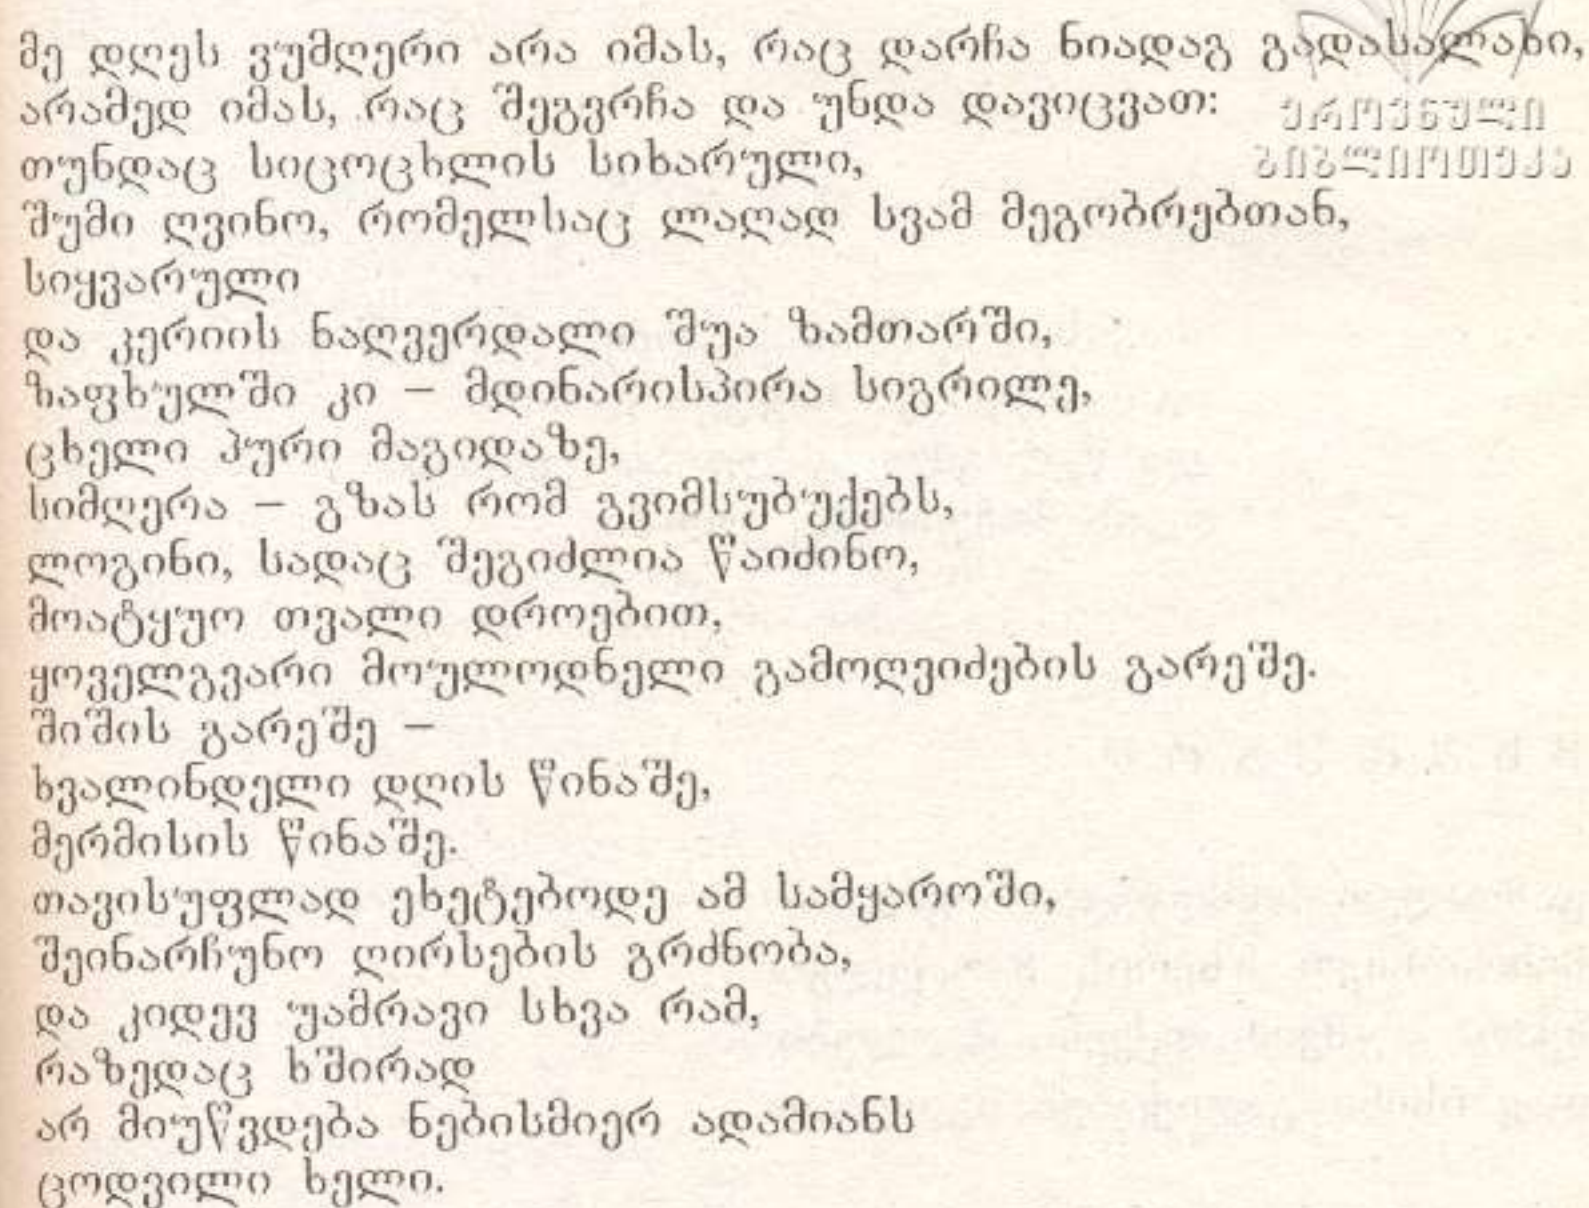 მე დღეს ვუმღერი არა იმას, რაც დარჩა ნიადაგ გადასალახი,
არამედ იმას, რაც შეგვრჩა და უნდა დავიცვათ:
ეროვნული
ბიბლიოთეკა
თუნდაც სიცოცხლის სიხარული,
შუმი ღვინო, რომელსაც ლაღად სვამ მეგობრებთან,
სიყვარული
და კერიის ნაღვერდალი შუა ზამთარში,
ზაფხულში კი – მდინარისპირა სიგრილე,
ცხელი პური მაგიდაზე,
სიმღერა – გზას რომ გვიმსუბუქებს,
ლოგინი, სადაც შეგიძლია წაიძინო,
მოატყუო თვალი დროებით,
ყოველგვარი მოულოდნელი გამოღვიძების გარეშე.
შიშის გარეშე –
ხვალინდელი დღის წინაშე,
მერმისის წინაშე.
თავისუფლად ეხეტებოდე ამ სამყაროში,
შეინარჩუნო ღირსების გრძნობა,
და კიდევ უამრავი სხვა რამ,
რაზედაც ხშირად
არ მიუწვდება ნებისმიერ ადამიანს
ცოდვილი ხელი.